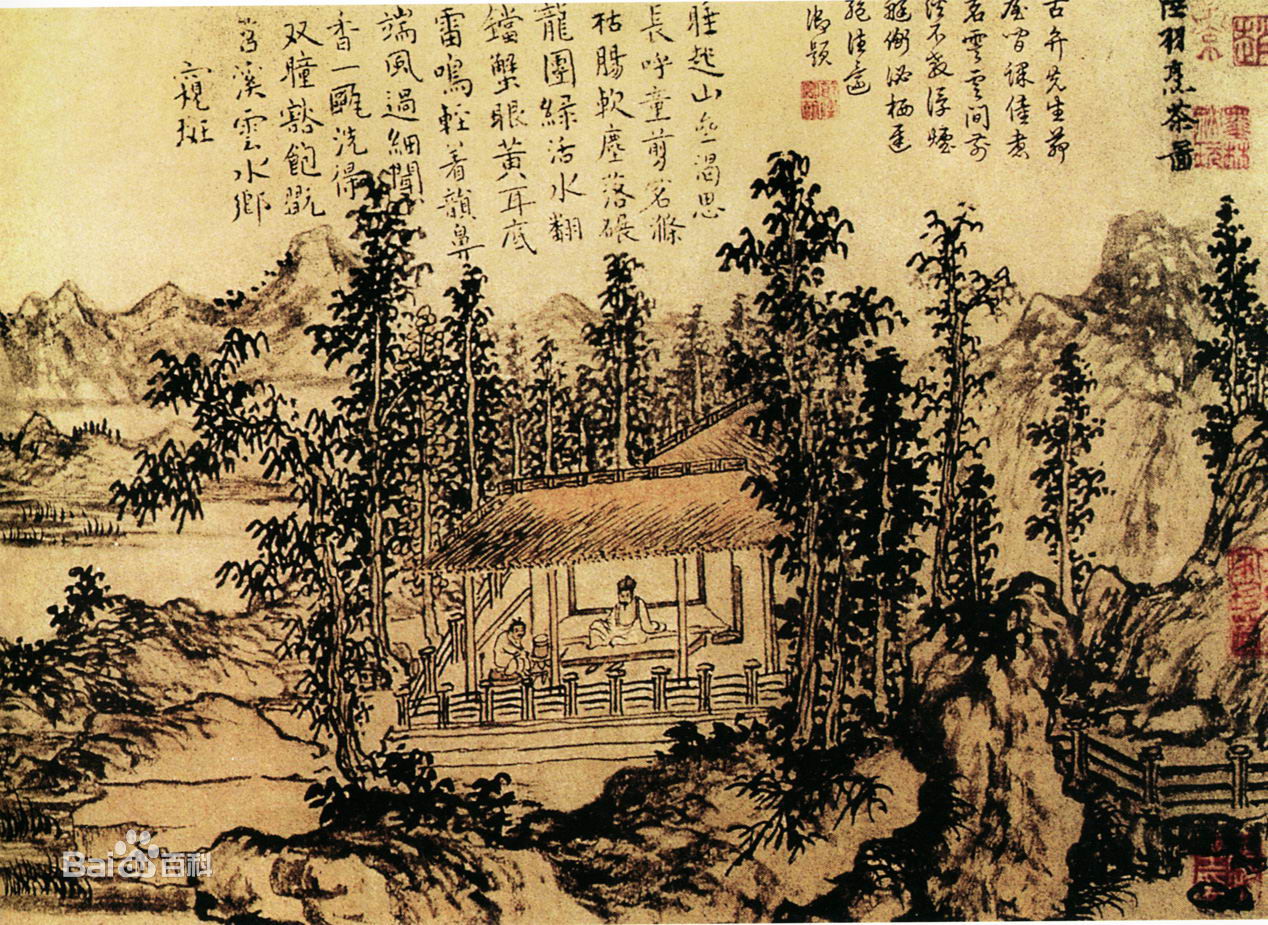 陸羽烹茶圖
古弁先生茆
屋間課僮煮
茗雪雲間前
溪不教浮煙
艇衡泌栖遲
絕往還
御題
睡起山亝渴思
長呼童剪茗滌
枯腸軟塵落碾
龍團綠活水翻
鐺蟹眼黃耳底
雷鳴輕着韻鼻
端風過細聞
香一甌洗得
双瞳豁飽翫
苕溪雲水鄉
窺斑
Bai百科